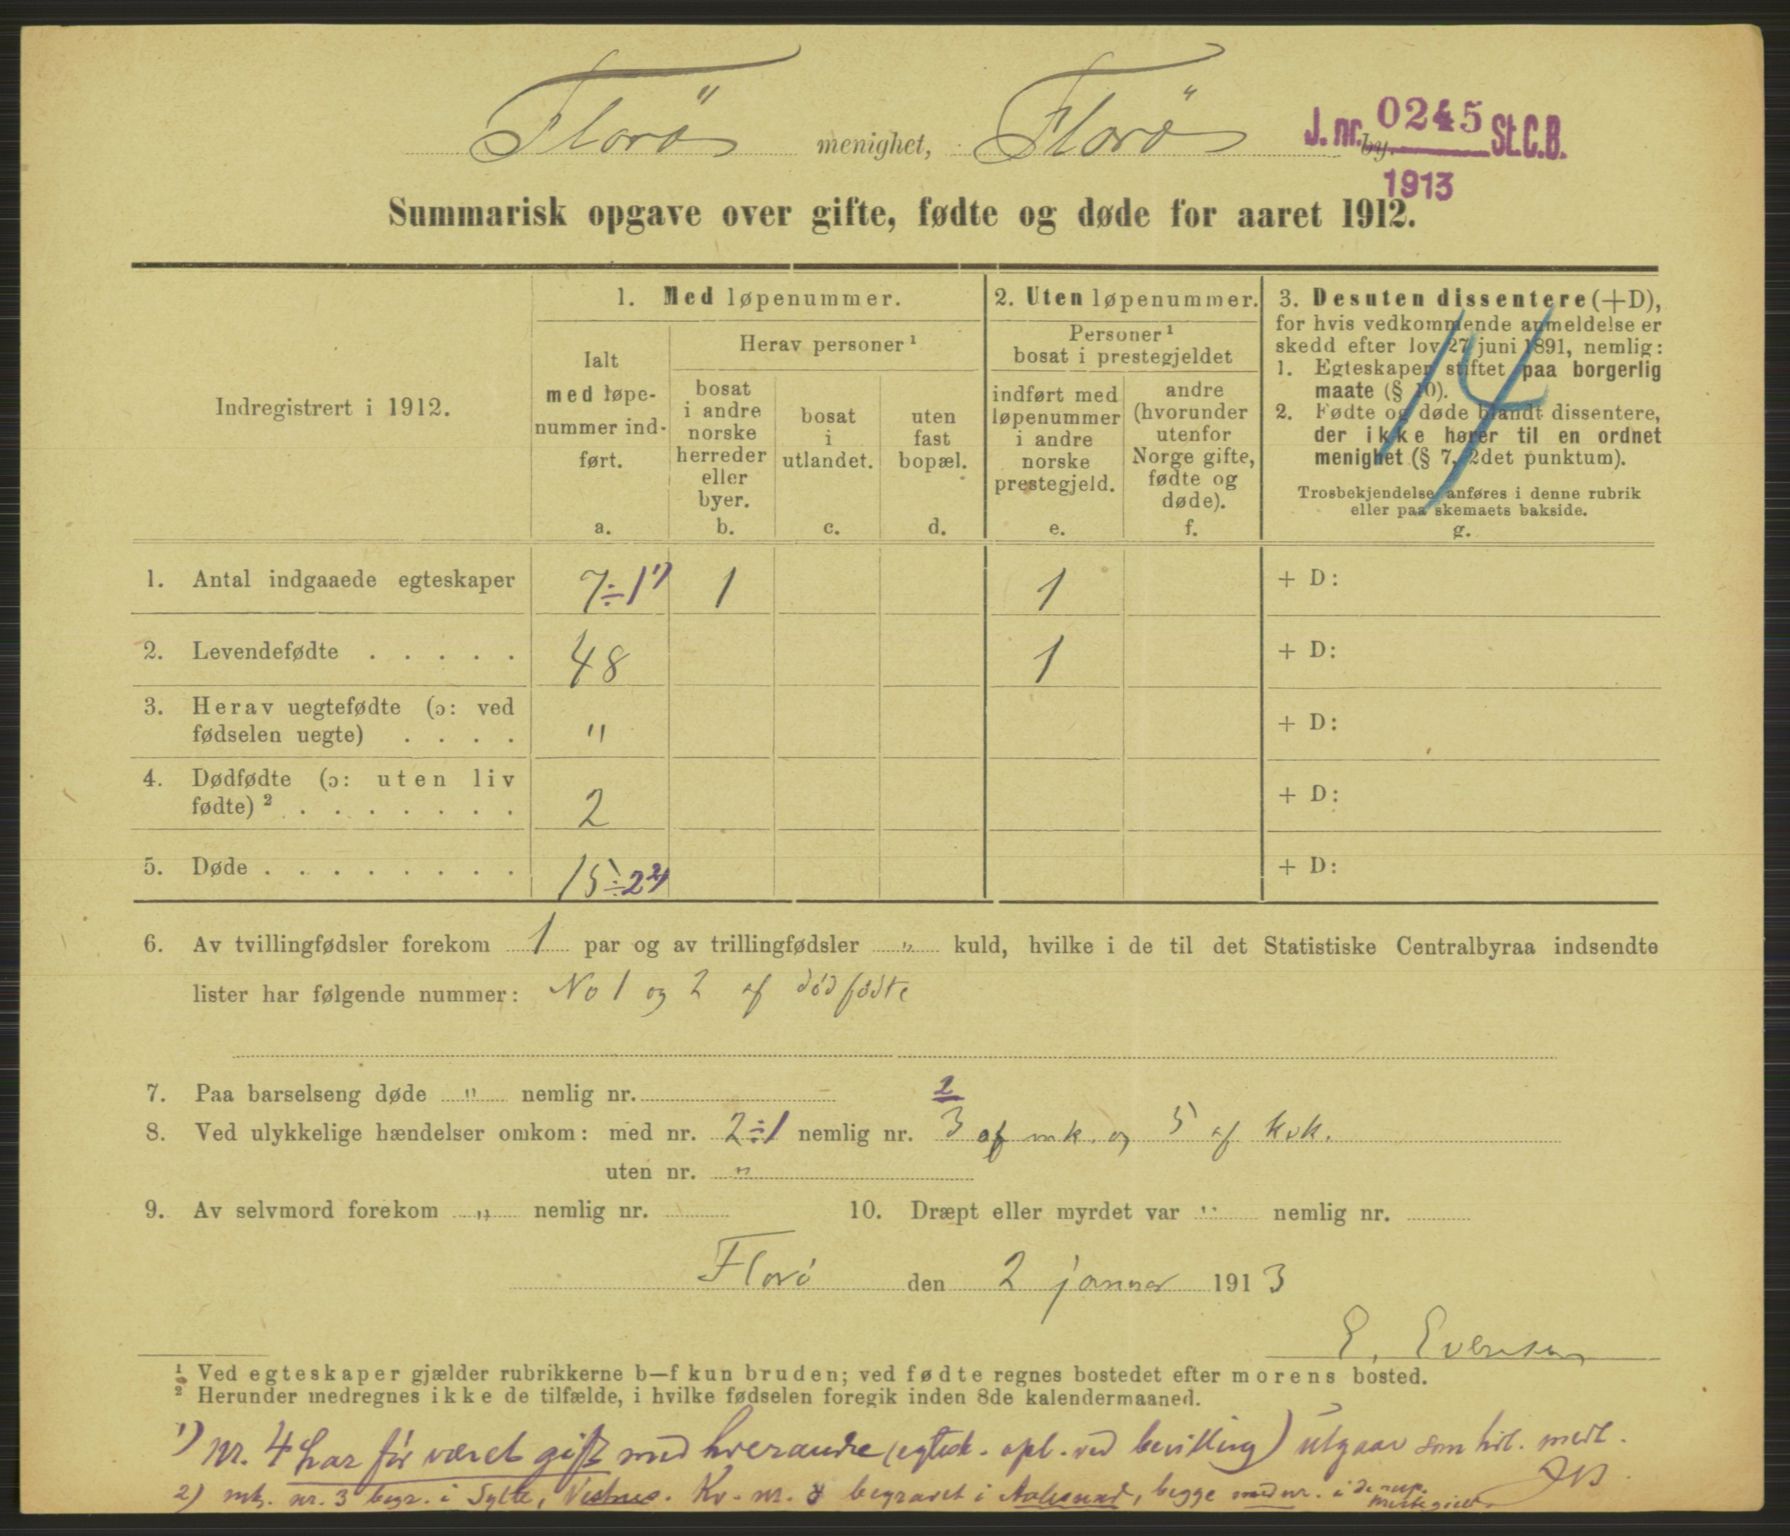 Florö menighet, Florö by.
J. nr. 0245 St.C.B.
1913
Summarisk opgave over gifte, fødte og døde for aaret 1912.
Indregistrert i 1912.
1. Med løpenummer.
Ialt
med løpe-
nummer ind-
ført.
a.
Herav personer ¹
bosat
i andre
norske
herreder
eller
byer.
b.
bosat
i
utlandet.
c.
uten
fast
bopæl.
d.
2. Uten løpenummer.
Personer ¹
bosat i prestegjeldet
indført med
løpenummer
i andre
norske
prestegjeld.
e.
andre
(hvorunder
utenfor
Norge gifte,
fødte og
døde).
f.
3. Desuten dissentere (+D),
for hvis vedkommende anmeldelse er
skedd efter lov 27 juni 1891, nemlig:
1. Egteskaper stiftet paa borgerlig
maate (§ 10).
2. Fødte og døde blandt dissentere,
der ikke hører til en ordnet
menighet (§ 7, 2det punktum).
Trosbekjendelse anføres i denne rubrik
eller paa skemaets bakside.
g.
14
1. Antal indgaaede egteskaper 7÷1 ¹) 1 1 + D:
2. Levendefødte . . . . . 48 1 + D:
3. Herav uegtefødte (ɔ: ved
fødselen uegte) . . . . " + D:
4. Dødfødte (ɔ: uten liv
fødte) ² . . . . . . . 2 + D:
5. Døde . . . . . . . . 15÷2 ²) + D:
6. Av tvillingfødsler forekom 1 par og av trillingfødsler " kuld, hvilke i de til det Statistiske Centralbyraa indsendte
lister har følgende nummer: No 1 og 2 af dødfødte
7. Paa barselseng døde " nemlig nr.
2
8. Ved ulykkelige hændelser omkom: med nr. 2÷1 nemlig nr. 3 af mk. og 5 af kvk.
uten nr. "
9. Av selvmord forekom " nemlig nr. 10. Dræpt eller myrdet var " nemlig nr.
Florø den 2 januar 1913
E. Evensen
¹ Ved egteskaper gjælder rubrikkerne b—f kun bruden; ved fødte regnes bostedet efter morens bosted.
² Herunder medregnes ikke de tilfælde, i hvilke fødselen foregik inden 8de kalendermaaned.
1) Nr. 4 har før været gift med hverandre (egtesk. opl. ved bevilling) utgaar som
2) mk. nr. 3 begr. i Sylte, Kv. nr. 8 begravet i Aalesund, begge med nr. i de resp.
prestegjeld